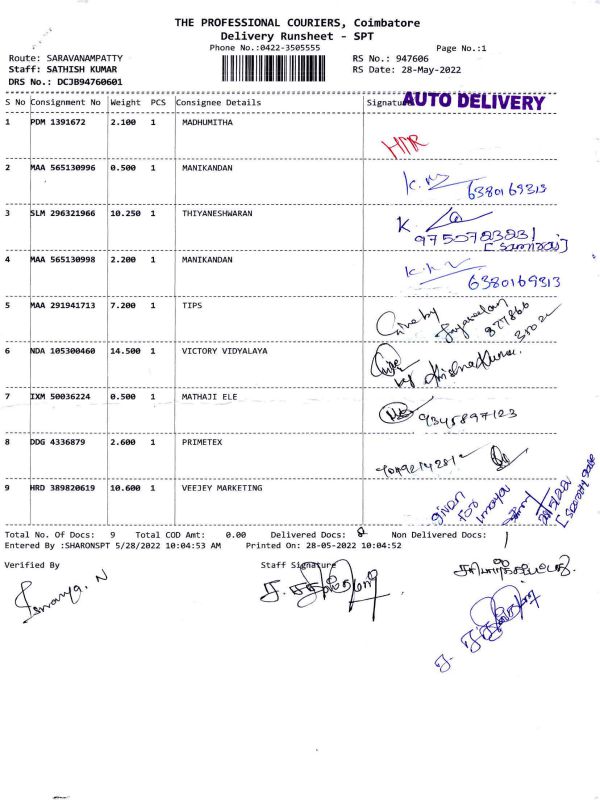 THE PROFESSIONAL COURIERS, Coimbatore
Delivery Runsheet - SPT
Phone No.:0422-3505555
Page No.:1
Route: SARAVANAMPATTY
RS No.: 947606
Staff: SATHISH KUMAR
RS Date: 28-May-2022
DRS No.: DCJB94760601
S No Consignment No Weight PCS Consignee Details Signature
AUTO DELIVERY
1 PDM 1391672 2.100 1 MADHUMITHA
2 MAA 565130996 0.500 1 MANIKANDAN
6380169313
3 SLM 296321966 10.250 1 THIYANESHWARAN
K
4 MAA 565130998 2.200 1 MANIKANDAN
6380169313
5 MAA 291941713 7.200 1 TIPS
Give by
6 NDA 105300460 14.500 1 VICTORY VIDYALAYA
by Krishna Kumar.
7 IXM 50036224 0.500 1 MATHAJI ELE
9345897123
8 DDG 4336879 2.600 1 PRIMETEX
9 HRD 389820619 10.600 1 VEEJEY MARKETING
given
for
Total No. Of Docs: 9 Total COD Amt: 0.00 Delivered Docs: 8 Non Delivered Docs: 1
Entered By :SHARONSPT 5/28/2022 10:04:53 AM Printed On: 28-05-2022 10:04:52
Verified By Staff Signature